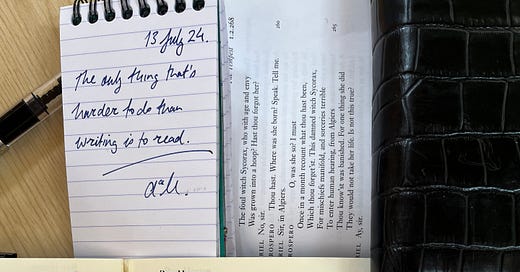 13 July 24.
The only thing that's
harder to do than
writing is to read.
1.2.268
The foul witch Sycorax, who with age and envy
Was grown into a hoop? Hast thou forgot her?
RIEL No, sir.
ROSPERO Thou hast. Where was she born? Speak. Tell me.
RIEL Sir, in Algiers.
ROSPERO O, was she so? I must
Once in a month recount what thou hast been,
Which thou forget'st. This damned witch Sycorax,
For mischiefs manifold, and sorceries terrible
To enter human hearing, from Algiers
Thou know'st was banished. For one thing she did
They would not take her life. Is not this true?
RIEL Ay, sir.
265